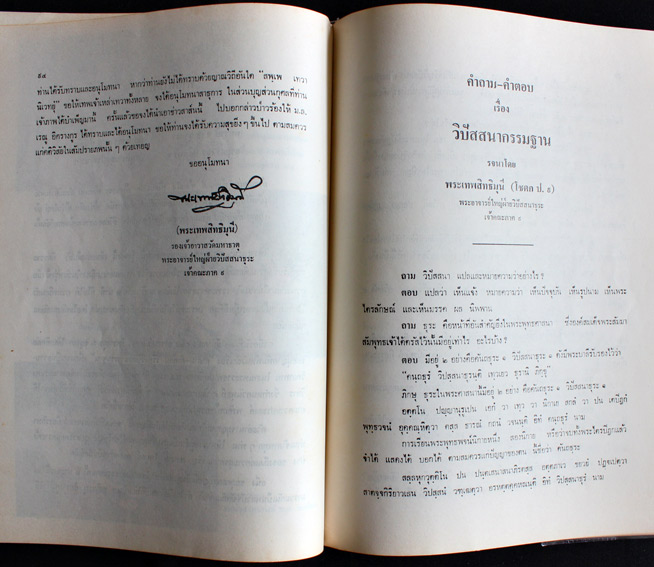 ๙๔
ท่านได้รับทราบและอนุโมทนา หากว่าท่านยังไม่ได้ทราบด้วยญาณวิถีอันใด "สพฺเพ เทวา
ขอให้เทพเจ้าเหล่าเทวาทั้งหลาย จงได้อนุโมทนาสาธุการ ในส่วนบุญส่วนกุศลที่ท่าน
เจ้าภาพได้บำเพ็ญมานี้ ครั้นแล้วขอจงได้นำเอาข่าวสาส์นนี้ ไปบอกกล่าวป่าวร้องให้ ม.ล.
เรณู อิศรางกูร ได้ทราบและได้อนุโมทนา ขอให้ท่านจงได้รับความสุขยิ่ง ๆ ขึ้นไป ตามสมควร
แก่คติวิสัยในสัมปรายภพนั้น ๆ ด้วยเทอญ
ขออนุโมทนา
(พระเทพสิทธิมุนี)
รองเจ้าอาวาสวัดมหาธาตุ
พระอาจารย์ใหญ่ฝ่ายวิปัสสนาธุระ
เจ้าคณะภาค ๙
คำถาม-คำตอบ
เรื่อง
วิปัสสนากรรมฐาน
รจนาโดย
พระเทพสิทธิมุนี (โชดก ป. ๙)
พระอาจารย์ใหญ่ฝ่ายวิปัสสนาธุระ
เจ้าคณะภาค ๙
ถาม วิปัสสนา แปลและหมายความว่าอย่างไร ?
ตอบ แปลว่า เห็นแจ้ง หมายความว่า เห็นปัจจุบัน เห็นรูปนาม เห็นพระ
ไตรลักษณ์ และเห็นมรรค ผล นิพพาน
ถาม ธุระ คือหน้าที่อันสำคัญยิ่งในพระพุทธศาสนา ซึ่งองค์สมเด็จพระสัมมา
สัมพุทธเจ้าได้ตรัสไว้นั้นมีอยู่เท่าไร อะไรบ้าง ?
ตอบ มีอยู่ ๒ อย่างคือคันถธุระ ๑ วิปัสสนาธุระ ๑ ดังมีพระบาลีรับรองไว้ว่า
"คนฺถธุรํ วิปสฺสนาธุรนฺติ เทฺวเยว ธุรานิ ภิกฺขุ"
ภิกษุ ธุระในพระศาสนานี้มีอยู่ ๒ อย่าง คือคันถธุระ ๑ วิปัสสนาธุระ ๑
อตฺตโน ปญฺญานุรูเปน เอกํ วา เทฺว วา นิกาเย สกลํ วา ปน เตปิฏกํ
พุทฺธวจนํ อุคฺคณฺหิตฺวา ตสฺส ธารณํ กถนํ วาจนนฺติ อิทํ คนฺถธุรํ นาม
การเรียนพระพุทธพจน์นิกายหนึ่ง สองนิกาย หรือว่าจบทั้งพระไตรปิฎกแล้ว
จำได้ แสดงได้ บอกได้ ตามสมควรแก่ปัญญาของตน นี้ชื่อว่า คันถธุระ
สลฺลหุกวุตฺติโน ปน ปนฺตเสนาสนาภิรตสฺส อตฺตภาเว ขยวยํ ปฏฺฐเปตฺวา
สาตจฺจกิริยาวเสน วิปสฺสนํ วฑฺเฒตฺวา อรหตฺตคฺคหณนฺติ อิทํ วิปสฺสนาธุรํ นาม